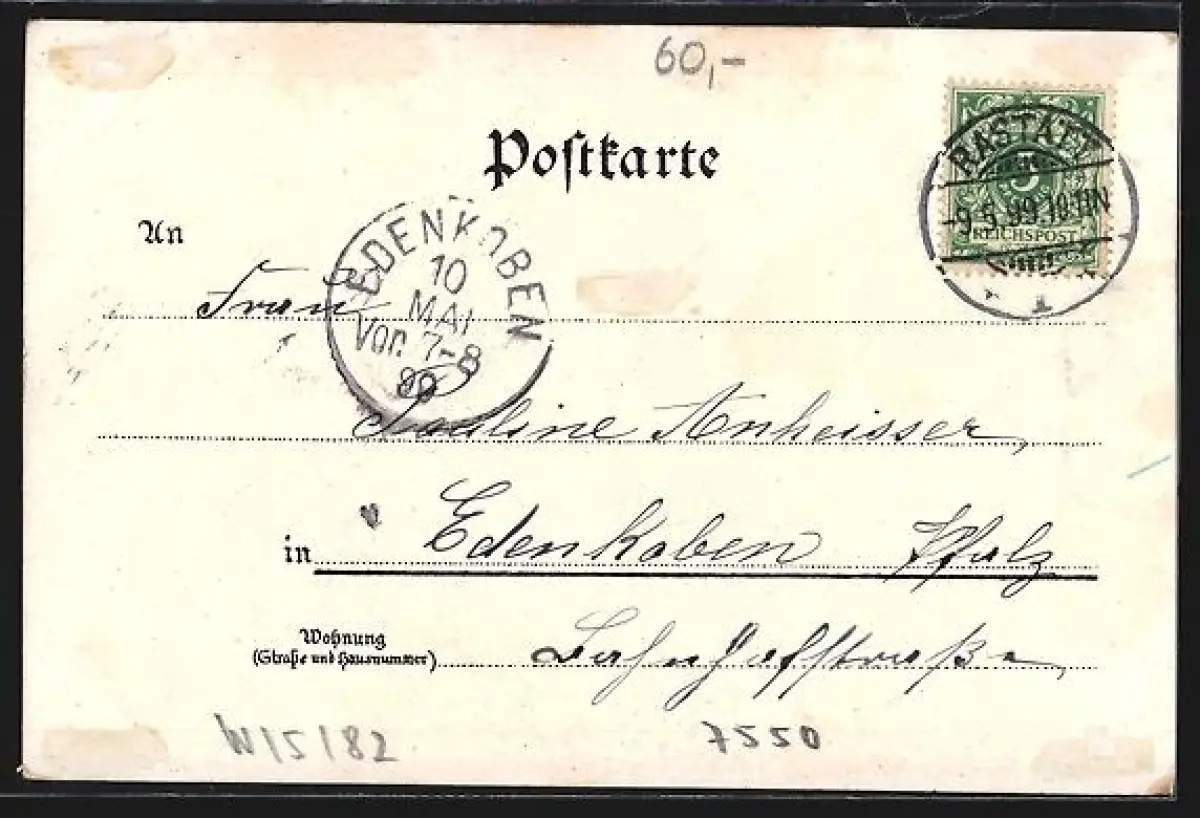 60,-
Postkarte
RASTATT
-9.5.99.10-11N
REICHSPOST
An
EDENKOBEN
10
MAI
Vor. 7-8
Frau
Pauline Anheisser,
in Edenkoben Pfalz
Wohnung
(Straße und Hausnummer) Bahnhofstraße,
W/5/82 7550